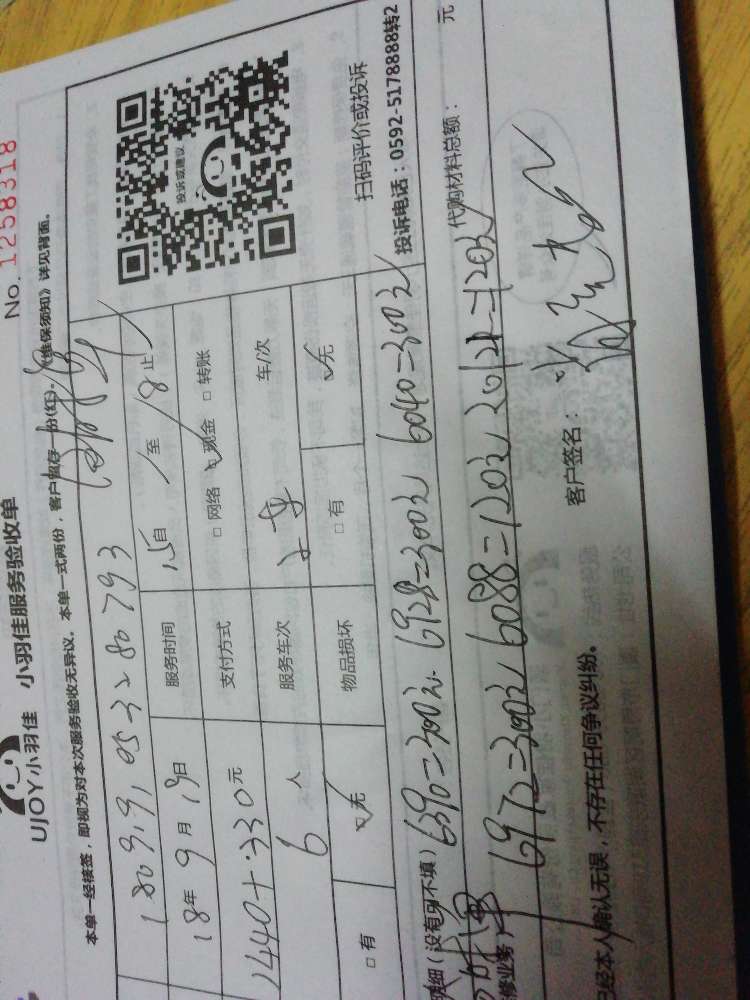 No. 1258318
UJOY小羽佳 小羽佳服务验收单
本单一经接签，即视为对本次服务验收无异议。本单一式两份，客户留存一份(红)。《维保须知》详见背面。
180919053280793
18年9月19日 服务时间 15自 / 至 /8止
1440+330元 支付方式 □网络 □现金 □转账
6人 服务车次 2车 车/次
□有 □无 物品损坏 □有 □无
投诉或建议
扫码评价或投诉
投诉电话：0592-5178888转2
明细（没有可不填）6390=300元 6928=300元 6040=300元 代购材料总额： 元
修业务 6972=300元 6088=120元 2012=120元
已经本人确认无误，不存在任何争议纠纷。 客户签名：